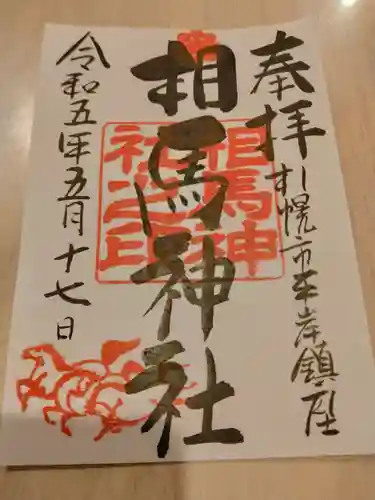 奉拝
札幌市平岸鎮座
相馬神社
相馬神社之印
令和五年五月十七日